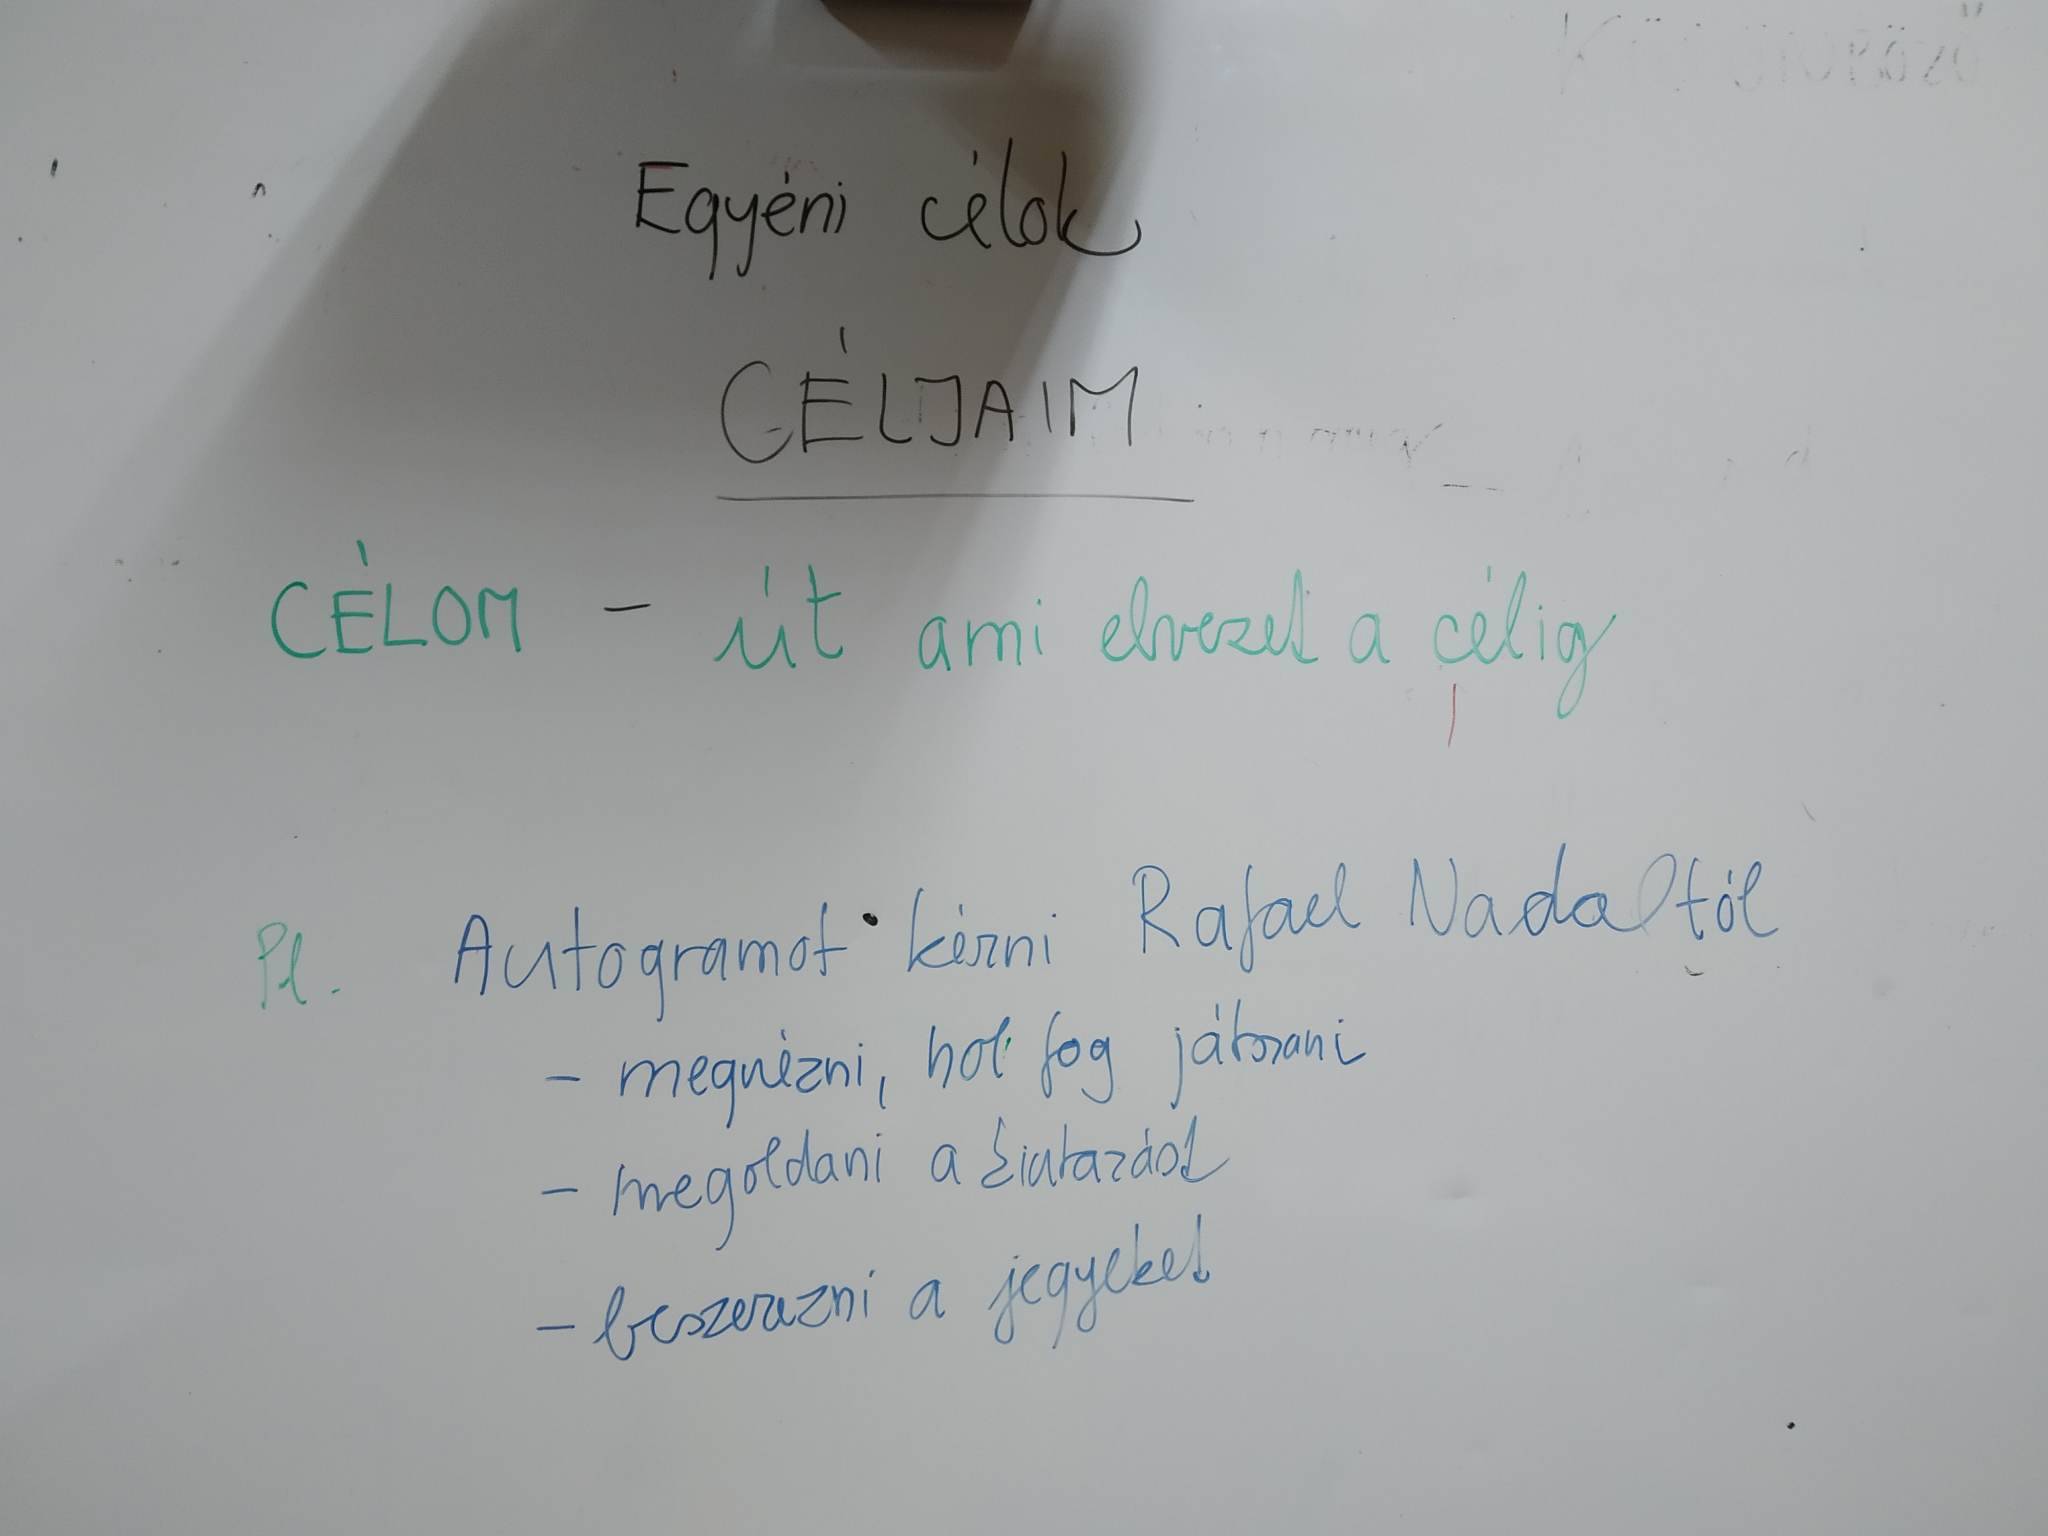 Egyéni célok
CÉLJAIM
CÉLOM - út ami elvezet a célig
Pl. Autogramot kérni Rafael Nadaltól
- megnézni, hol fog játszani
- megoldani a kiutazást
- beszerezni a jegyeket